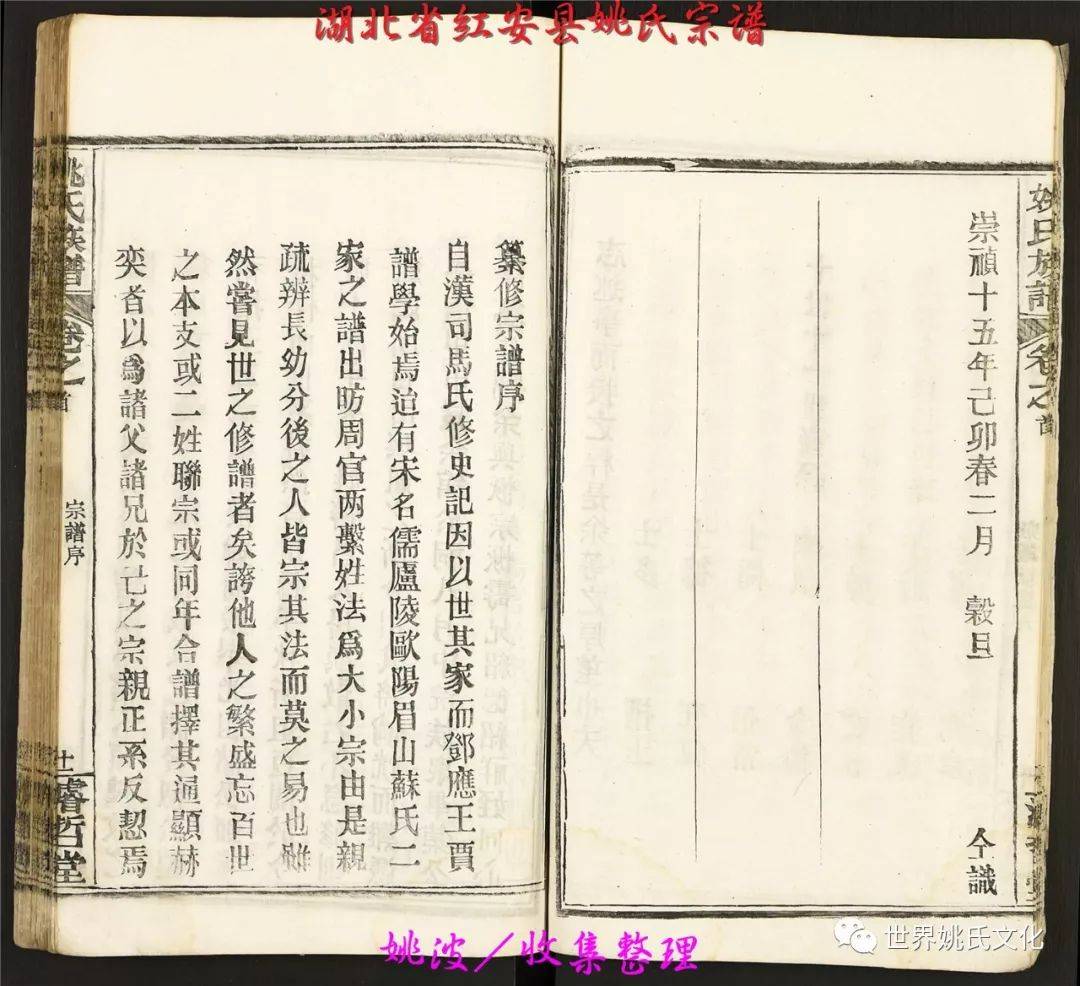 湖北省红安县姚氏宗谱
姚氏族譜
卷之首
崇禎十五年己卯春二月　穀旦
仝識
纂修宗譜序
自漢司馬氏修史記因以世其家而鄧應王賈
譜學始焉迨有宋名儒廬陵歐陽眉山蘇氏二
家之譜出昉周官两繫姓法爲大小宗由是親
疏辨長幼分後之人皆宗其法而莫之易也雖
然嘗見世之修譜者矣誇他人之繁盛忘百世
之本支或二姓聯宗或同年合譜擇其通顯赫
奕者以爲諸父諸兄於己之宗親正系反恝焉
姚氏族譜
卷之首
宗譜序
十一
濬哲堂
姚波／收集整理
世界姚氏文化